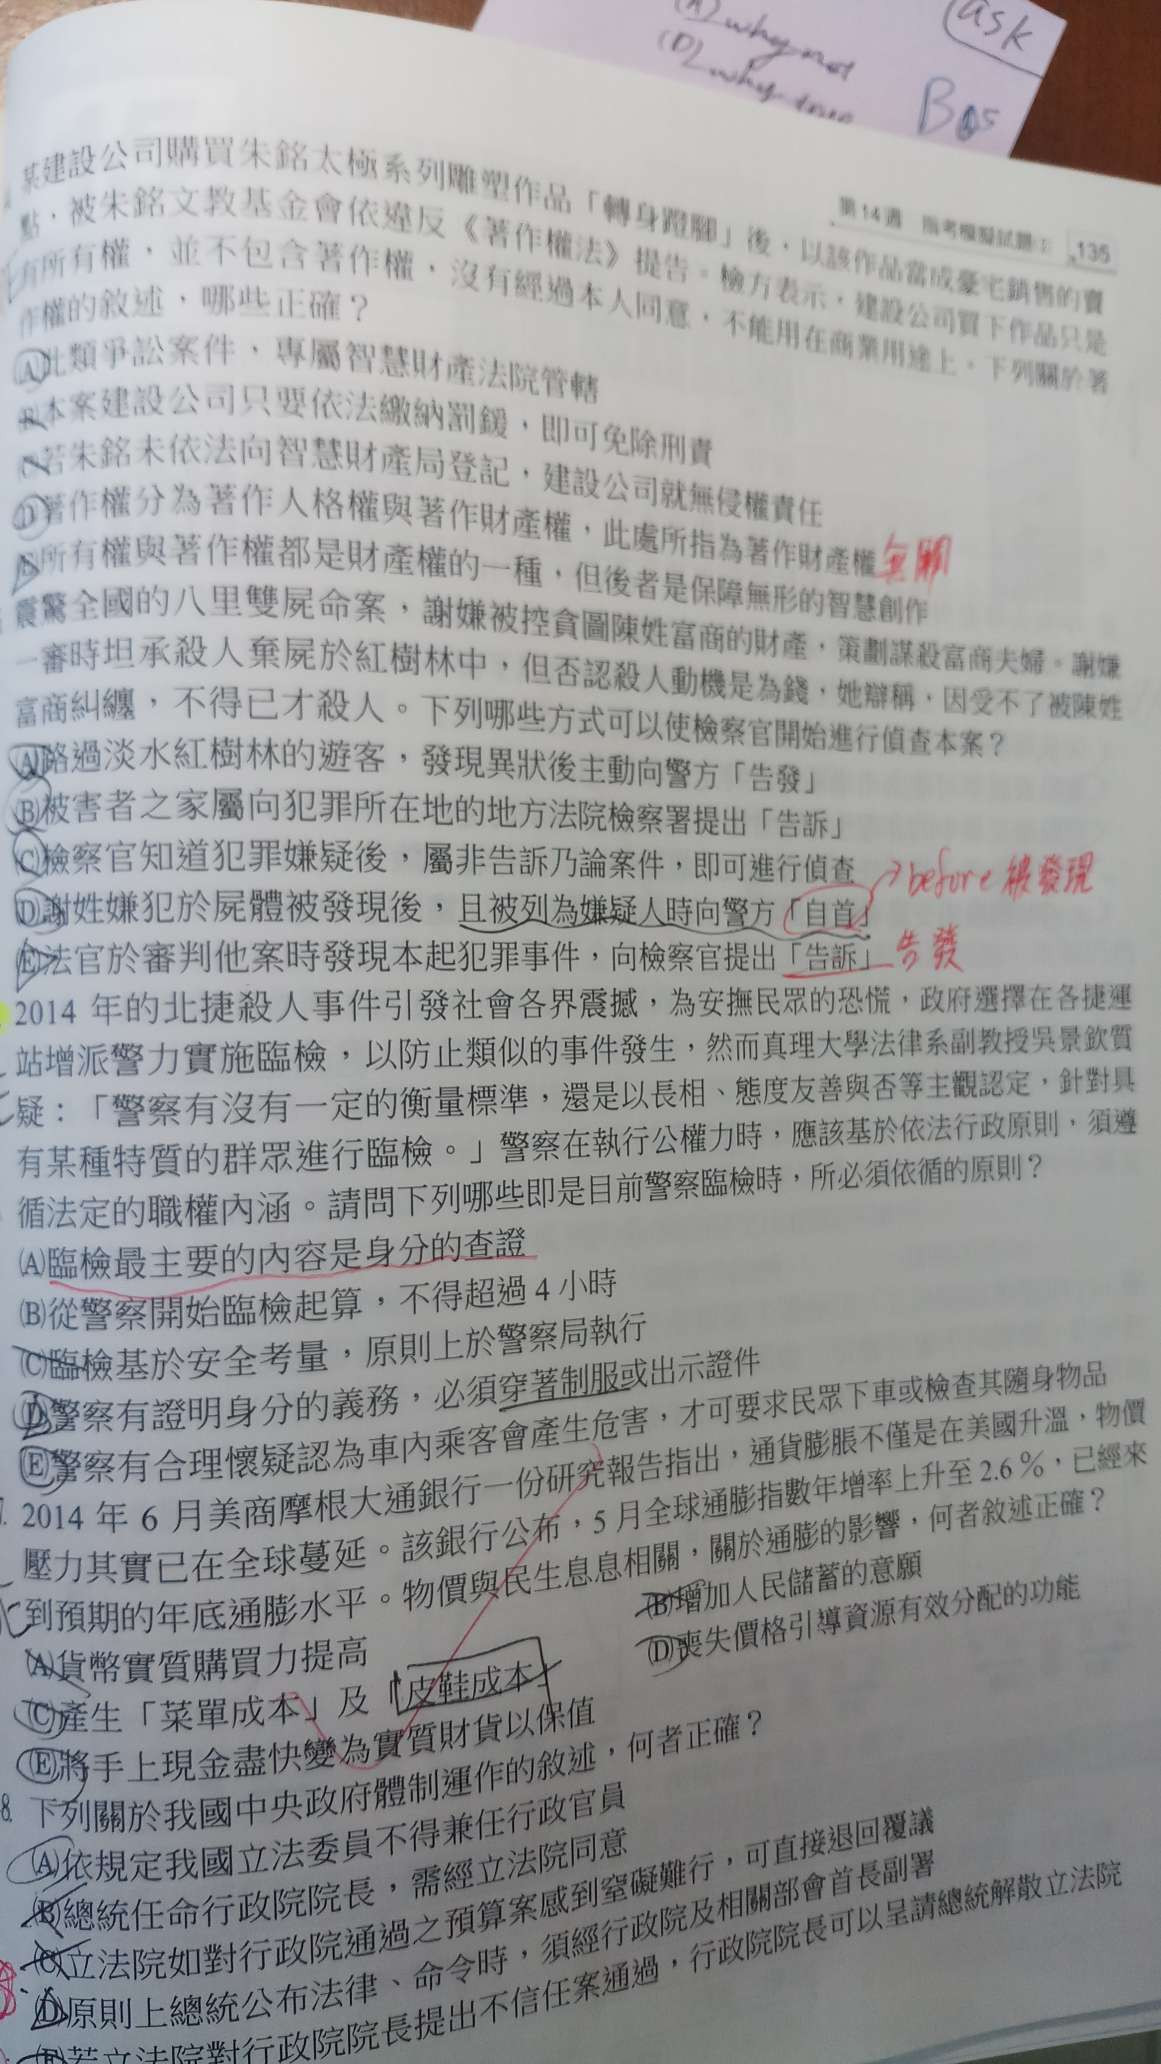 ask
(A) why not
(D) why
B
第14週 指考模擬試題 135
某建設公司購買朱銘太極系列雕塑作品「轉身蹬腳」後，以該作品當成豪宅銷售的賣
點，被朱銘文教基金會依違反《著作權法》提告。檢方表示，建設公司買下作品只是
有所有權，並不包含著作權，沒有經過本人同意，不能用在商業用途上。下列關於著
作權的敘述，哪些正確？
(A)此類爭訟案件，專屬智慧財產法院管轄
(B)本案建設公司只要依法繳納罰鍰，即可免除刑責
(C)若朱銘未依法向智慧財產局登記，建設公司就無侵權責任
(D)著作權分為著作人格權與著作財產權，此處所指為著作財產權 無關
(E)所有權與著作權都是財產權的一種，但後者是保障無形的智慧創作
震驚全國的八里雙屍命案，謝嫌被控貪圖陳姓富商的財產，策劃謀殺富商夫婦。謝嫌
一審時坦承殺人棄屍於紅樹林中，但否認殺人動機是為錢，她辯稱，因受不了被陳姓
富商糾纏，不得已才殺人。下列哪些方式可以使檢察官開始進行偵查本案？
(A)路過淡水紅樹林的遊客，發現異狀後主動向警方「告發」
(B)被害者之家屬向犯罪所在地的地方法院檢察署提出「告訴」
(C)檢察官知道犯罪嫌疑後，屬非告訴乃論案件，即可進行偵查
before 被發現
(D)謝姓嫌犯於屍體被發現後，且被列為嫌疑人時向警方「自首」
(E)法官於審判他案時發現本起犯罪事件，向檢察官提出「告訴」 告發
2014 年的北捷殺人事件引發社會各界震撼，為安撫民眾的恐慌，政府選擇在各捷運
站增派警力實施臨檢，以防止類似的事件發生，然而真理大學法律系副教授吳景欽質
疑：「警察有沒有一定的衡量標準，還是以長相、態度友善與否等主觀認定，針對具
有某種特質的群眾進行臨檢。」警察在執行公權力時，應該基於依法行政原則，須遵
循法定的職權內涵。請問下列哪些即是目前警察臨檢時，所必須依循的原則？
(A)臨檢最主要的內容是身分的查證
(B)從警察開始臨檢起算，不得超過 4 小時
(C)臨檢基於安全考量，原則上於警察局執行
(D)警察有證明身分的義務，必須穿著制服或出示證件
(E)警察有合理懷疑認為車內乘客會產生危害，才可要求民眾下車或檢查其隨身物品
2014 年 6 月美商摩根大通銀行一份研究報告指出，通貨膨脹不僅是在美國升溫，物價
壓力其實已在全球蔓延。該銀行公布，5 月全球通膨指數年增率上升至 2.6 %，已經來
到預期的年底通膨水平。物價與民生息息相關，關於通膨的影響，何者敘述正確？
(A)貨幣實質購買力提高 (B)增加人民儲蓄的意願
(C)產生「菜單成本」及「皮鞋成本」 (D)喪失價格引導資源有效分配的功能
(E)將手上現金盡快變為實質財貨以保值
8. 下列關於我國中央政府體制運作的敘述，何者正確？
(A)依規定我國立法委員不得兼任行政官員
(B)總統任命行政院院長，需經立法院同意
(C)立法院如對行政院通過之預算案感到窒礙難行，可直接退回覆議
(D)原則上總統公布法律、命令時，須經行政院及相關部會首長副署
(E)若立法院對行政院院長提出不信任案通過，行政院院長可以呈請總統解散立法院